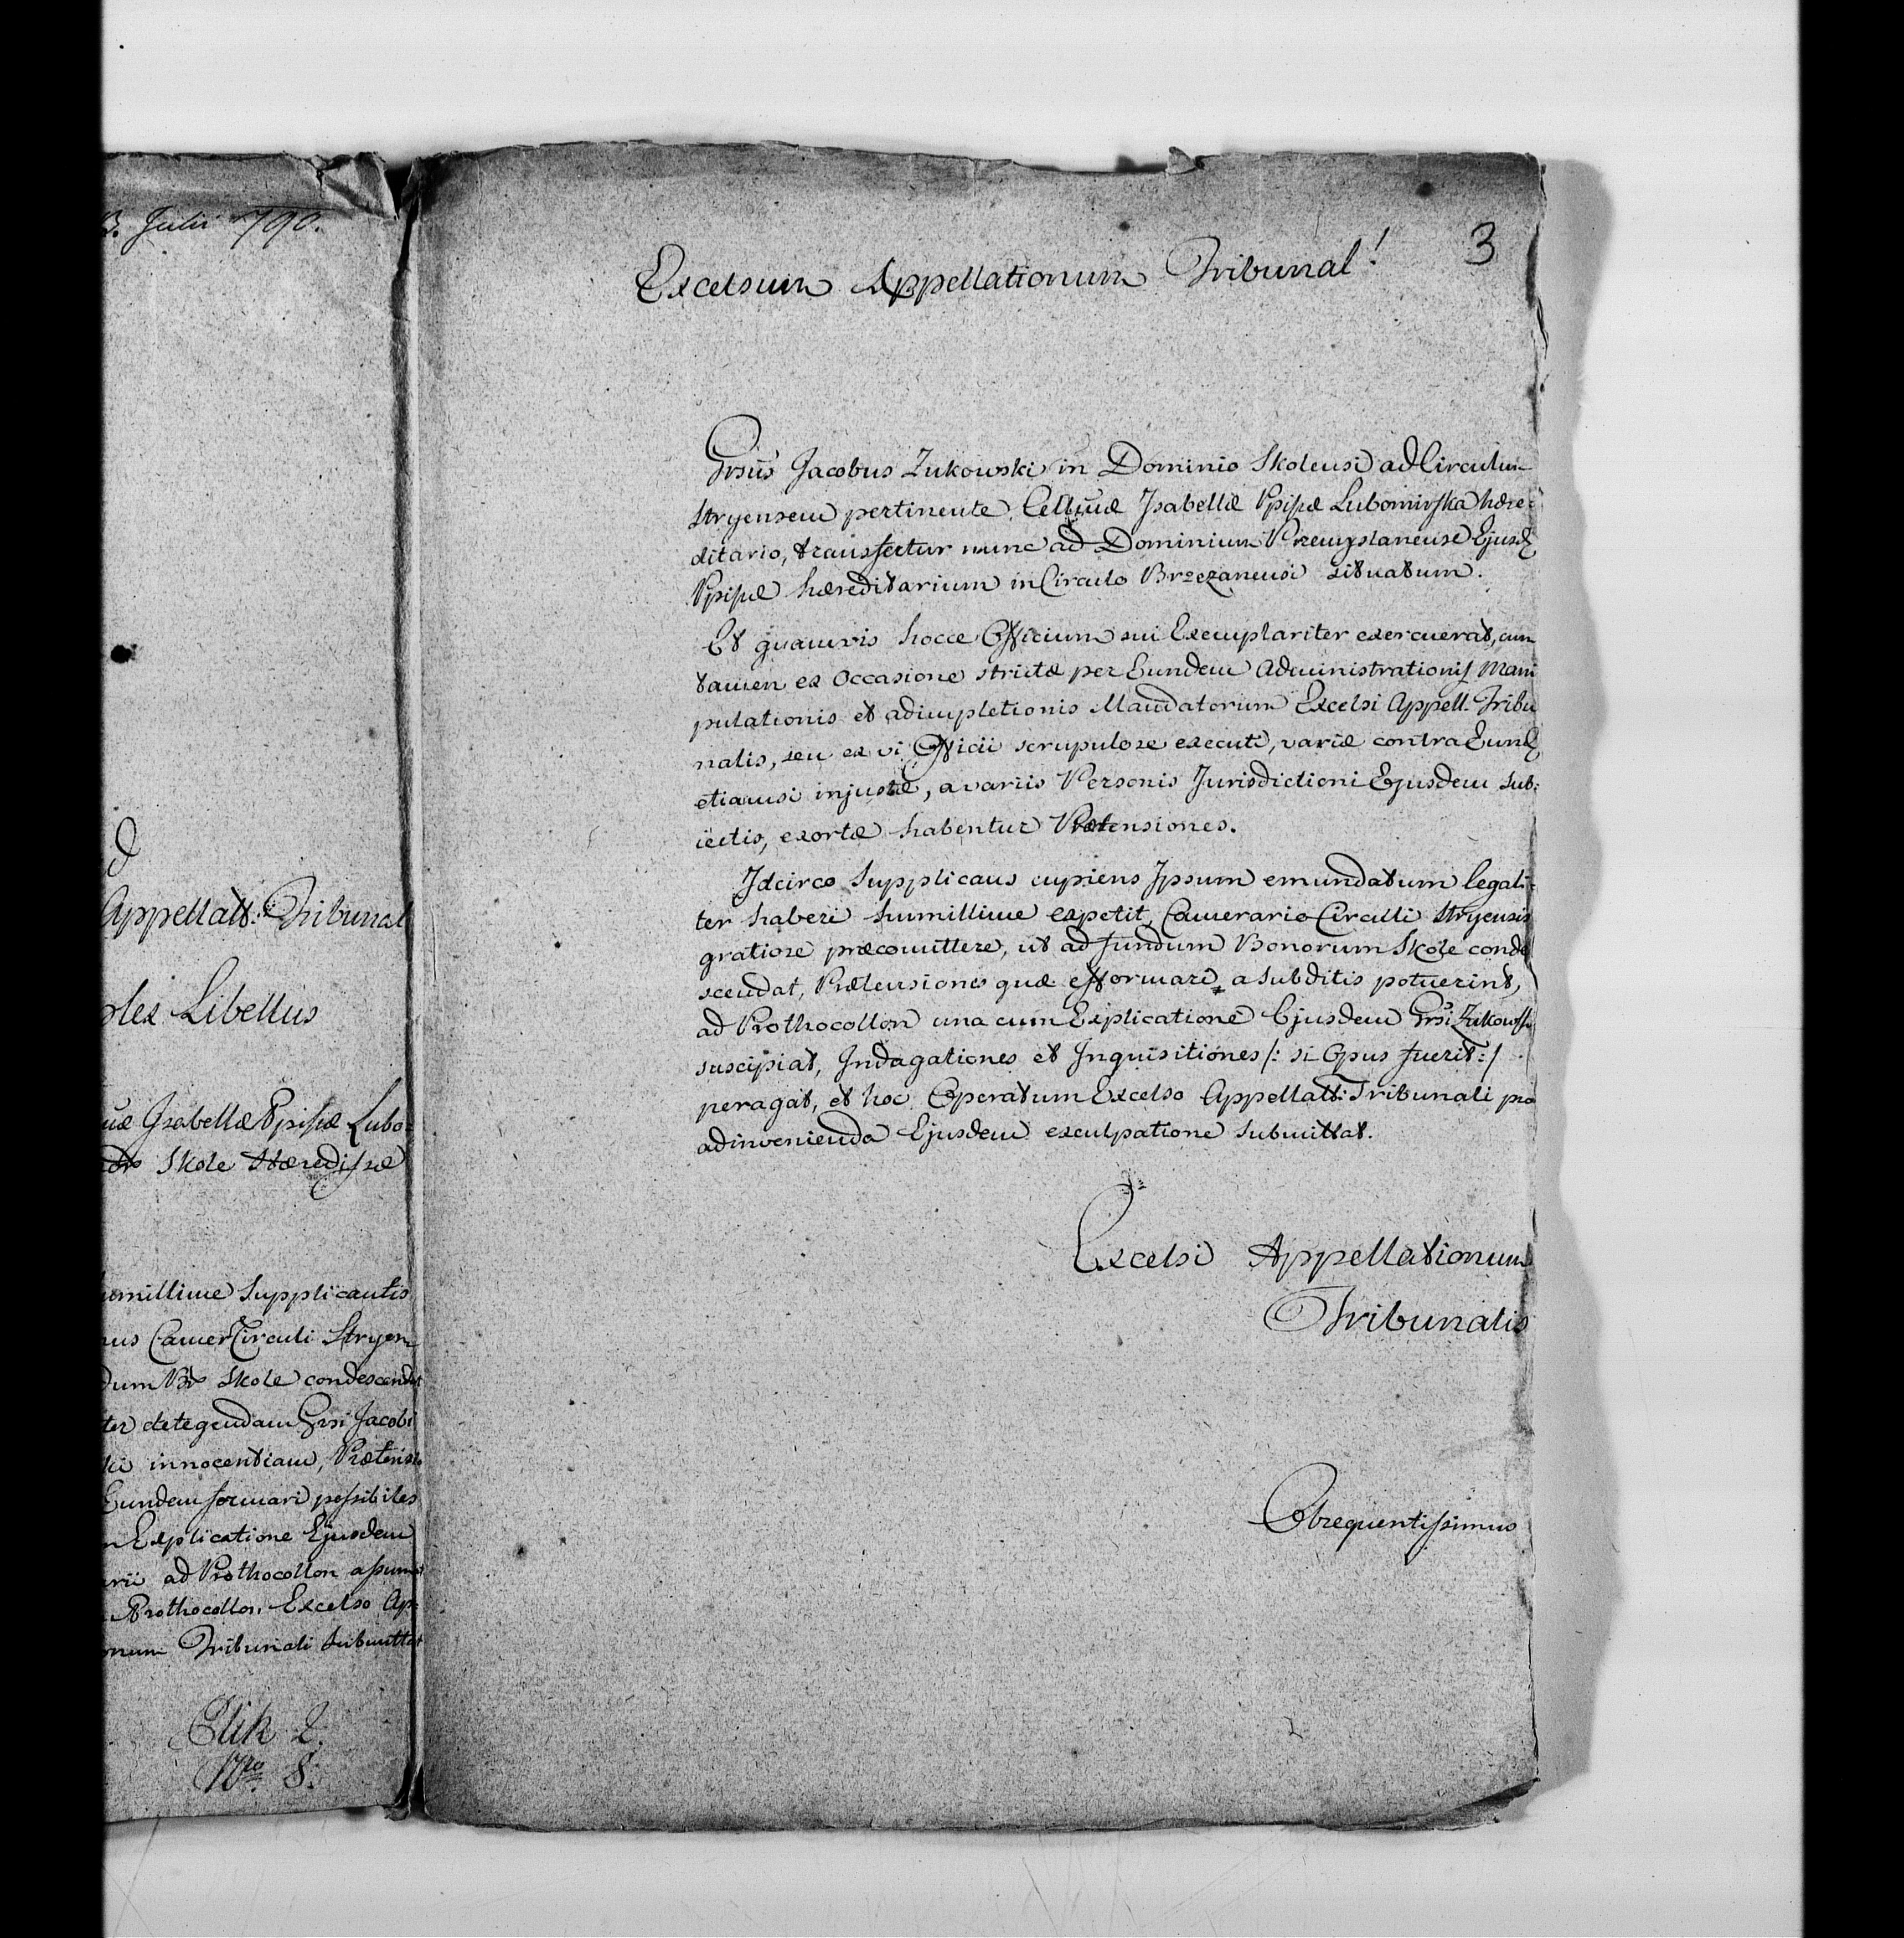 3. Julii 790.
d
Appellatt: Tribunal
plex Libellus
Isabellæ Ppissæ Lubo:
Skole Hæredissæ
humillime Supplicantis
Camer Circuli Stryen
dum Br Skole condescendat
ter detegendam Grsi Jacobi
ki innocentiam, Prætensio
Eundem formari possibiles
Explicatione Ejusdem
ad Prothocollon assumat
Prothocollon Excelso Ap:
onum Tribunali submittat
Nro 8.
3
Excelsum Appellationum Tribunal!
Grsus Jacobus Zukowski in Dominio Skolensi ad Circulum
Stryensem pertinente Isabellæ Ppissæ Lubomirska hære:
ditario, transfertur nunc ad Dominium Przemyslanense Ejusd
Ppissæ hæreditarium in Circulo Brzezanensi situatum.
Et quamvis hocce Officium sui Exemplariter exercuerat, cum
tamen ex Occasione strictæ per Eundem Administrationis Mani
pulationis et adimpletionis Mandatorum Excelsi Appell. Tribu
nalis, seu ex vi Officii scrupulose executi, variæ contra Eund
etiamsi injustæ, a variis Personis Jurisdictioni Ejusdem sub:
iectis, exortæ habentur Prætensiones.
Idcirco Supplicans cupiens Ipsum emundatum legali:
ter haberi humillime expetit, Camerario Circuli Stryensis
gratiose præcomittere, ut ad fundum Bonorum Skole conde
scendat, Prætensiones quæ efformari a subditis potuerint,
ad Prothocollon una cum Explicatione Ejusdem Grsi Zukowski
suscipiat, Indagationes et Inquisitiones /: si Opus fuerit :/
peragat, et hoc Operatum Excelso Appellatt: Tribunali pro
adinvenienda Ejusdem exculpatione submittat.
Excelsi Appellationum
Tribunalis
Obsequentissimus